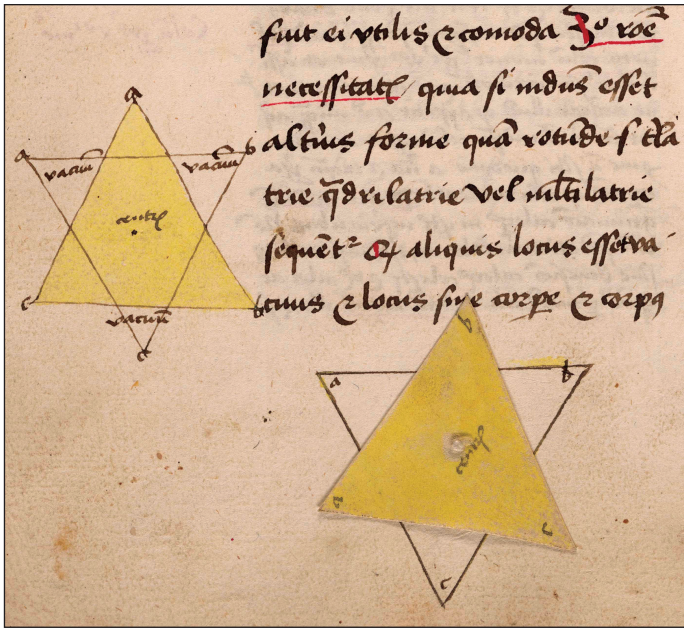 fuit ei vtilis ⁊ comoda 3º roē
necessitatꝭ quia si mdus̄ esset
altius forme quā rotūde s tl̄a
trie q̄drilatrie vel ml̄tilatrie
sequēt² ꝙ aliquis locus esset va
cuus ⁊ locus sine corpe ⁊ corpꝰ
a
a
b
vacuū
vacuū
centꝝ
c
b
vacuū
c
b
a
b
centꝝ
a
c
c